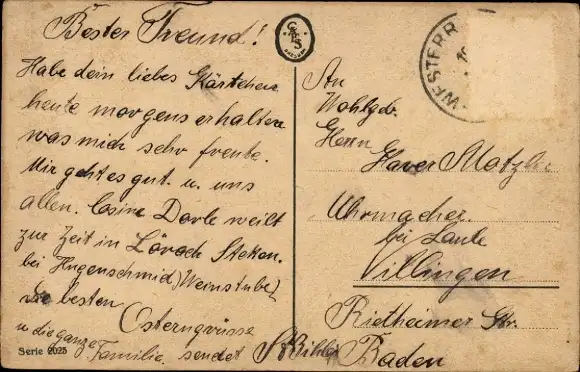 Bester Freund!
Habe dein liebes Kärtchen
heute morgens erhalten
was mich sehr freute.
Mir geht es gut. u. uns
allen. Cosine Dorle weilt
zur Zeit in Lörach Stetten.
bei Hugenschmid (Weinstube)
die besten
Ostergrüsse
u die ganze
Familie. sendet
Serie 2025
WESTERR
An
Wohlgeb.
Herrn
Xaver Matzler
Uhrmacher
bei Laule
Villingen
Rietheimer Str.
Baden